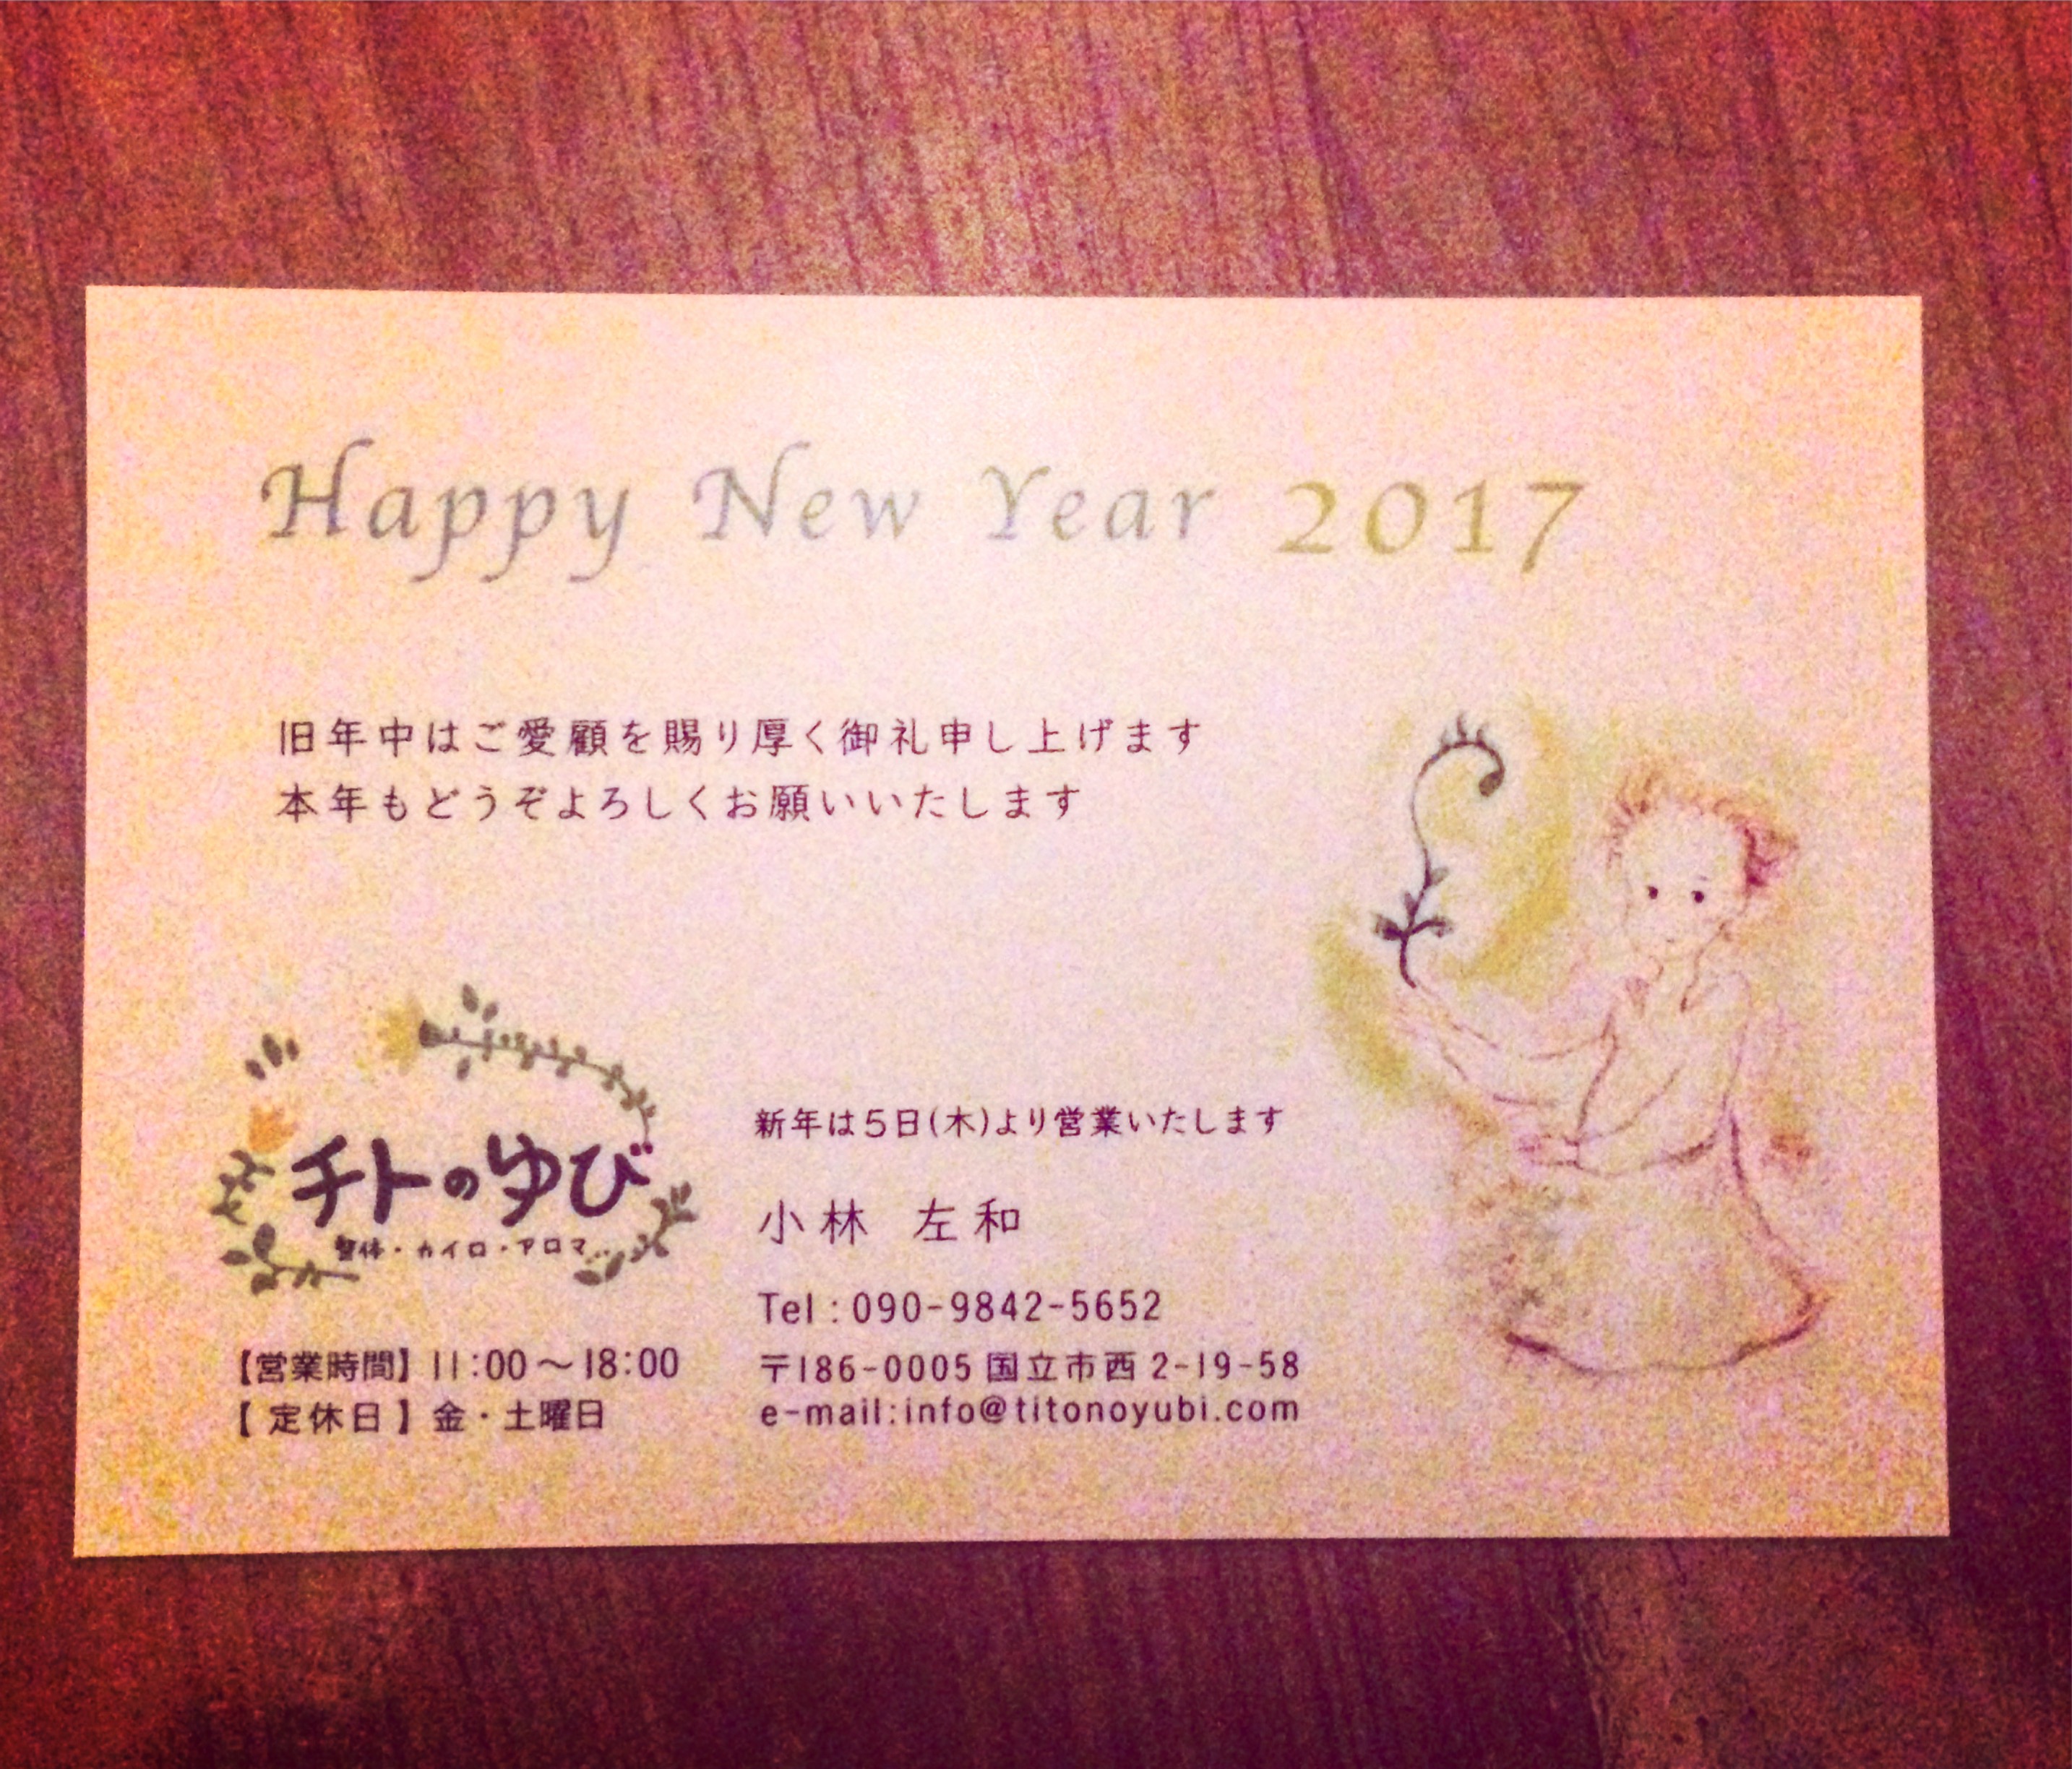 Happy New Year 2017
旧年中はご愛顧を賜り厚く御礼申し上げます
本年もどうぞよろしくお願いいたします
チトのゆび
整体・カイロ・アロマ...
【営業時間】11:00～18:00
【 定休日 】金・土曜日
新年は5日(木)より営業いたします
小林 左和
Tel：090-9842-5652
〒186-0005 国立市西 2-19-58
e-mail:info@titonoyubi.com